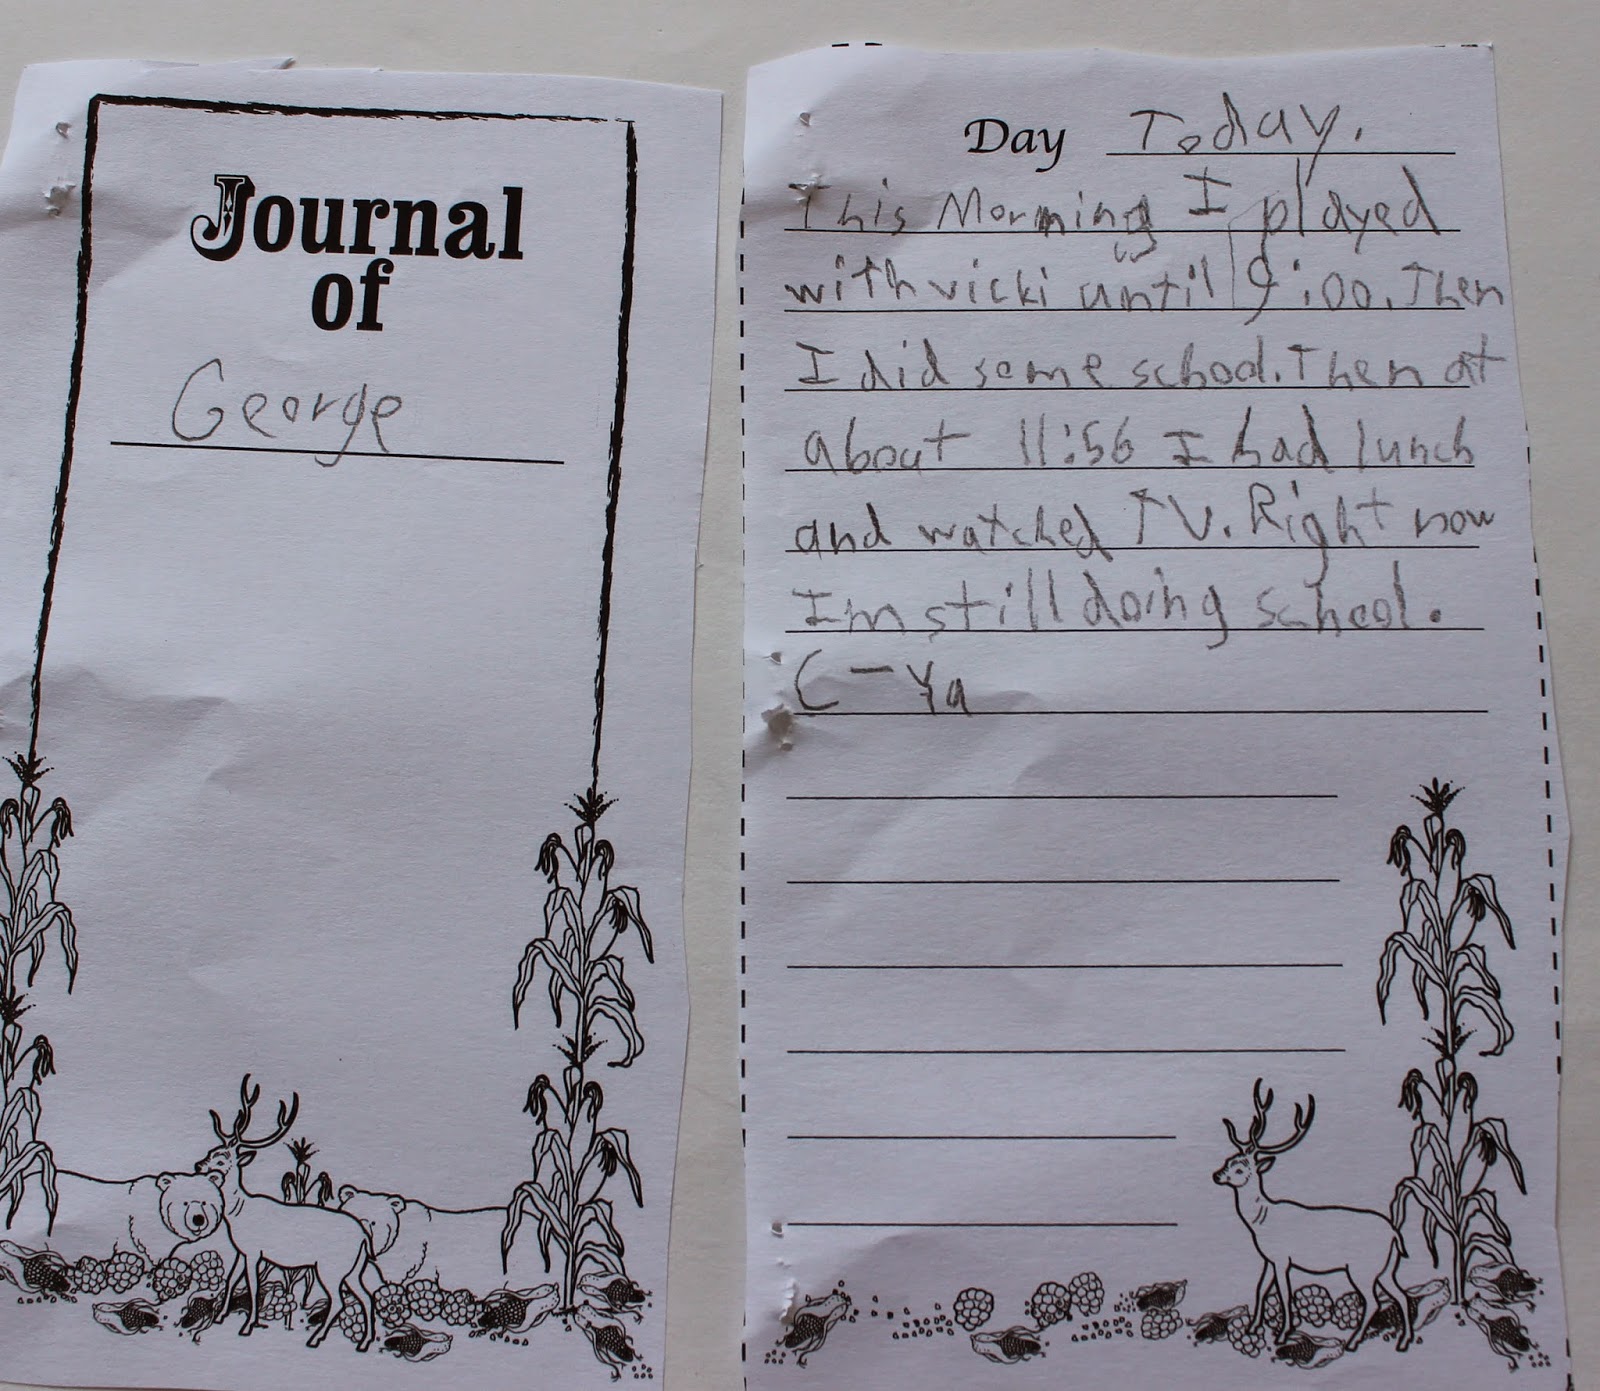 Journal
of
George
Day Today.
This Morning I played
with vicki until 9:00. Then
I did some school. Then at
about 11:56 I had lunch
and watched TV. Right now
Im still doing school.
C-Ya